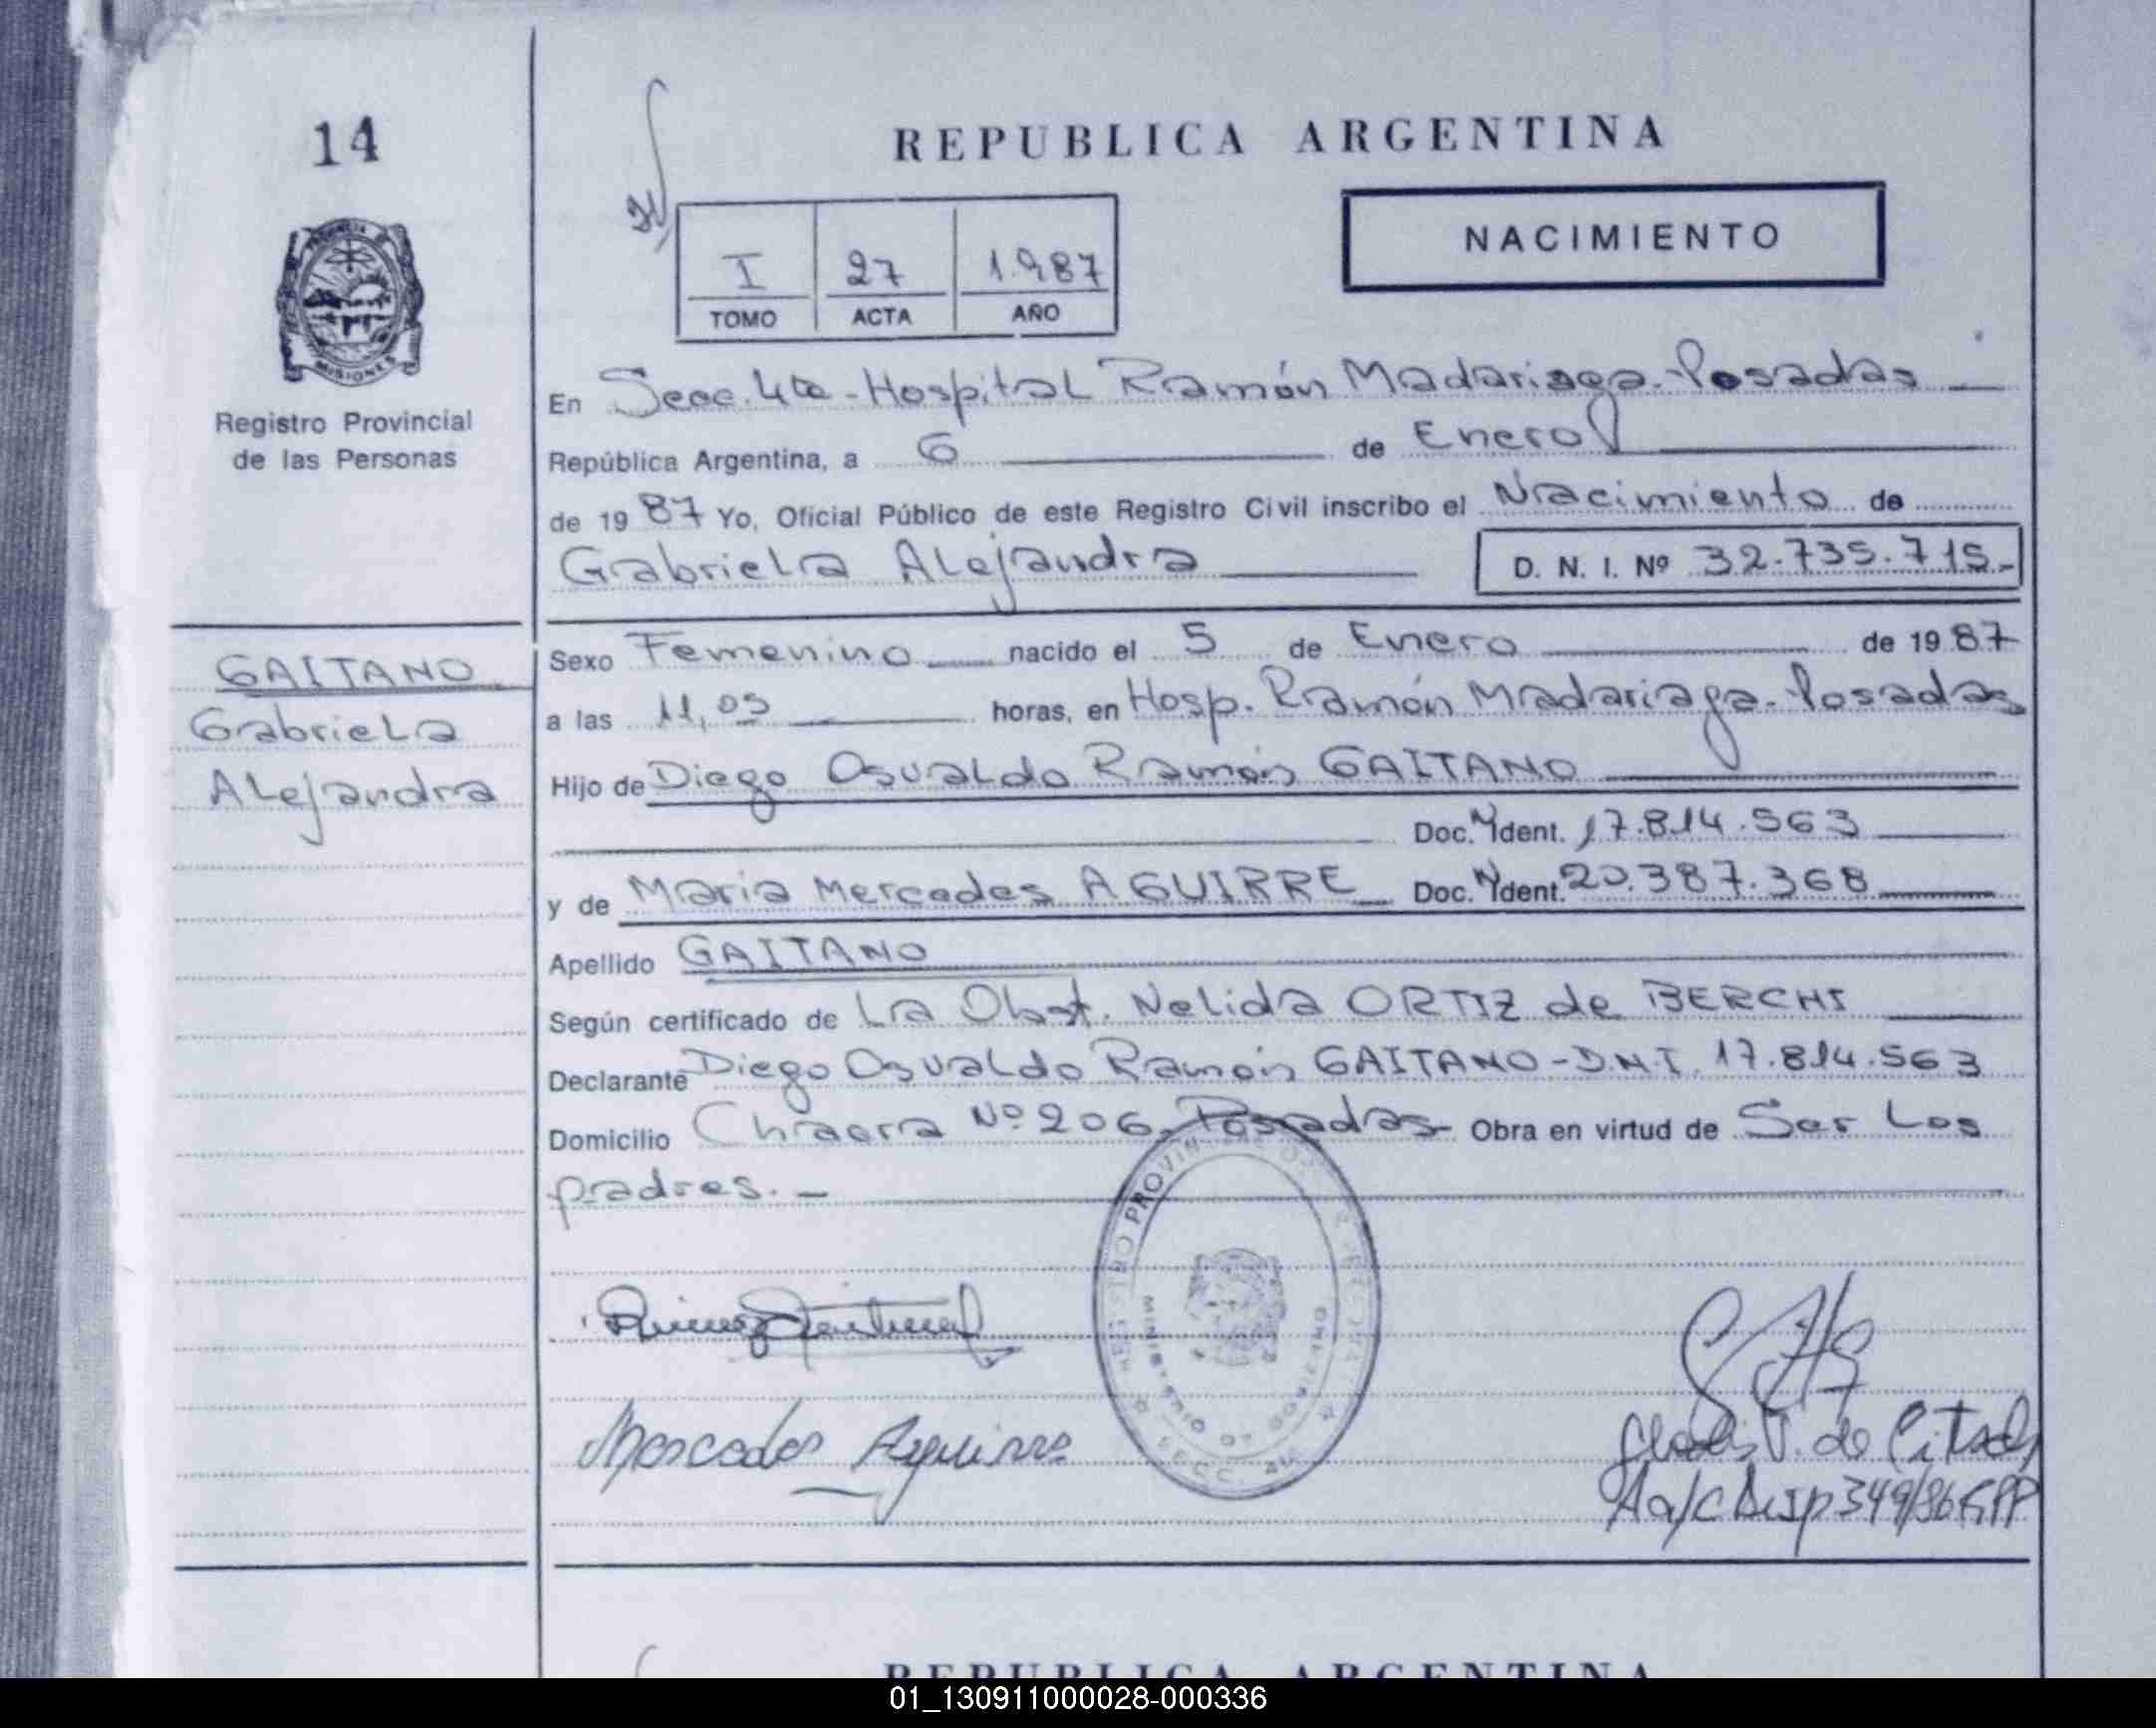 14
REPUBLICA ARGENTINA
NACIMIENTO
I 27 1.987
TOMO ACTA AÑO
PROVINCIA
MISIONES
Registro Provincial
de las Personas
En Secc. 4ta - Hospital Ramón Madariaga - Posadas
República Argentina, a 6 de Enero
de 1987 Yo, Oficial Público de este Registro Civil inscribo el Nacimiento de
Gabriela Alejandra D. N. I. Nº 32.735.715.-
GAITANO
Gabriela
Alejandra
Sexo Femenino nacido el 5 de Enero de 1987
a las 11,03 horas, en Hosp. Ramón Madariaga - Posadas
Hijo de Diego Osvaldo Ramón GAITANO
Doc. Ident. 17.814.563
y de Maria Mercedes AGUIRRE Doc. Ident. 20.387.368
Apellido GAITANO
Según certificado de La Obst. Nelida ORTIZ de BERCHI
Declarante Diego Osvaldo Ramón GAITANO - D.N.I. 17.814.563
Domicilio Chacra Nº 206 - Posadas - Obra en virtud de Ser Los
padres. -
REGISTRO PROVINCIAL DE
MINISTERIO DE GOBIERNO
SECC. 4ta
Mercedes Aguirre
V. de
A/C Disp 349/86 RPP
REPUBLICA ARGENTINA
01_130911000028-000336